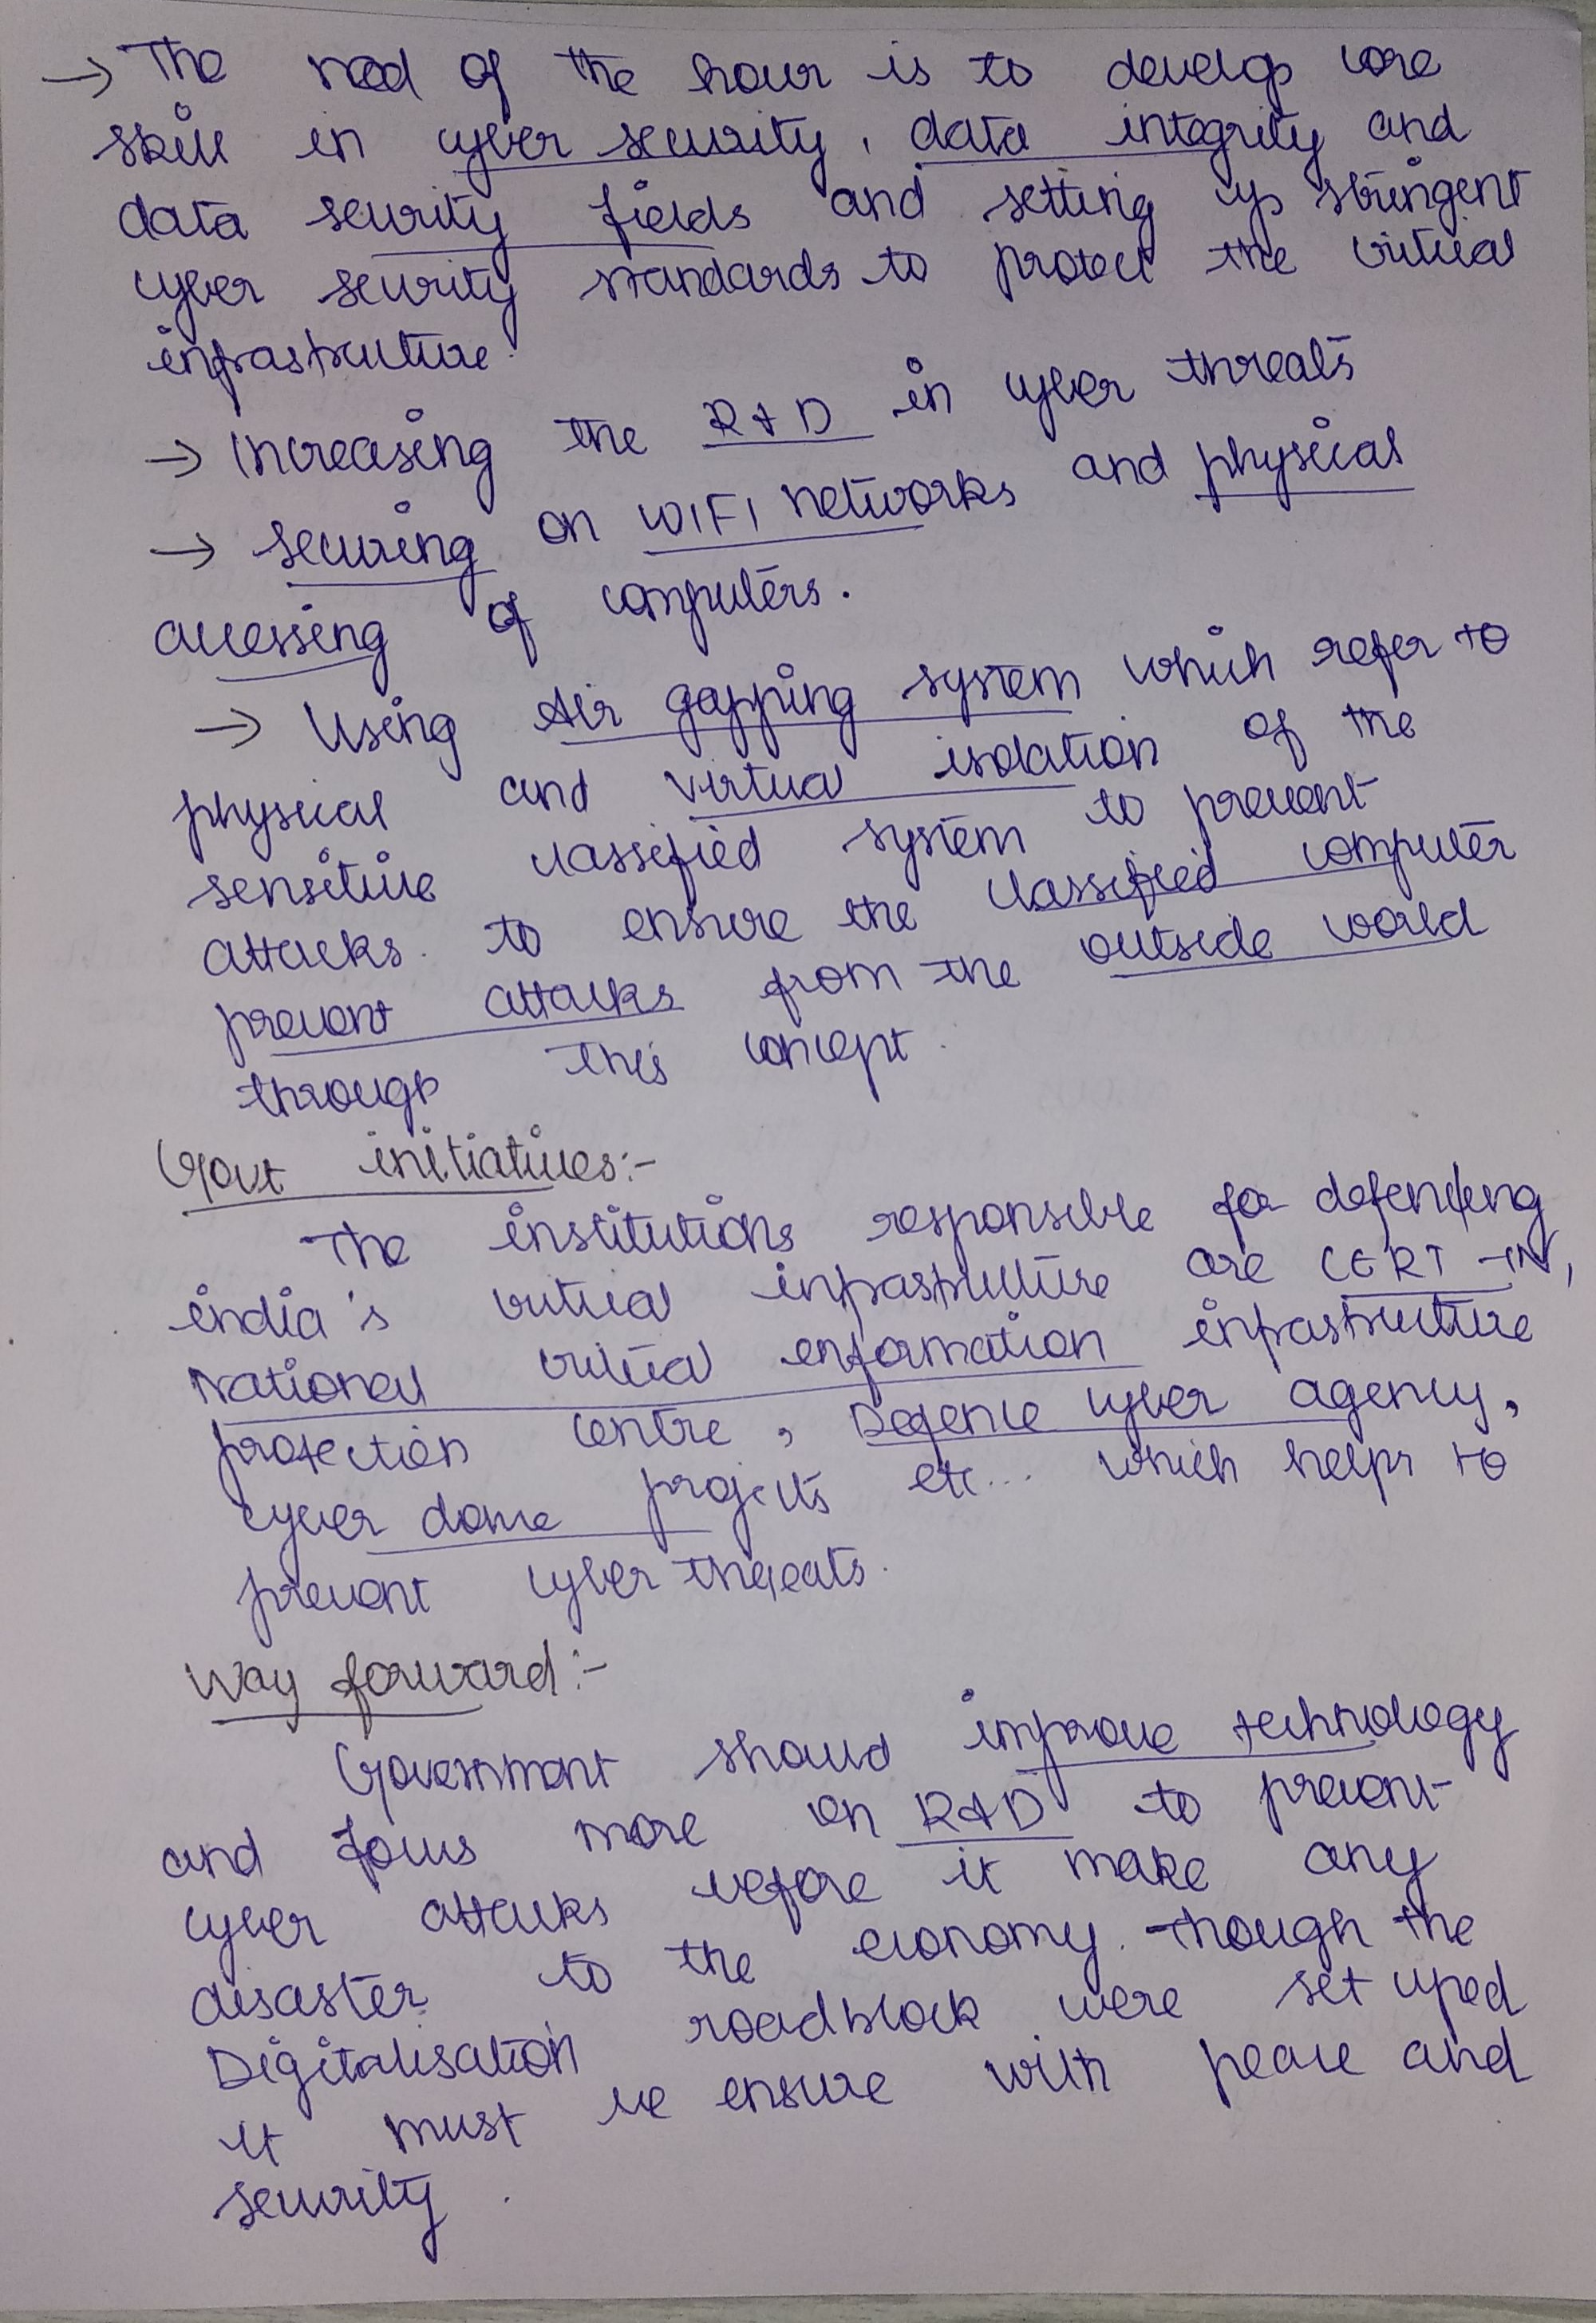 → The need of the hour is to develop core
skill in cyber security, data integrity and
data security fields and setting up stringent
cyber security standards to protect the critical
infrastructure.
→ Increasing the R&D in cyber threats
→ securing on WIFI networks and physical
accessing of computers.
→ Using Air gapping system which refer to
physical and virtual isolation of the
sensitive classified system to prevent
attacks. to ensure the classified computer
prevent attacks from the outside world
through this concept.
Govt initiatives:-
The institutions responsible for defending
india's critical infrastructure are CERT-IN,
National critical information infrastructure
protection centre, Defence cyber agency,
cyber dome projects etc... which helps to
prevent cyber threats.
Way forward:-
Government should improve technology
and focus more on R&D to prevent
cyber attacks before it make any
disaster to the economy. Though the
Digitalisation roadblock were set uped
it must be ensure with peace and
security.